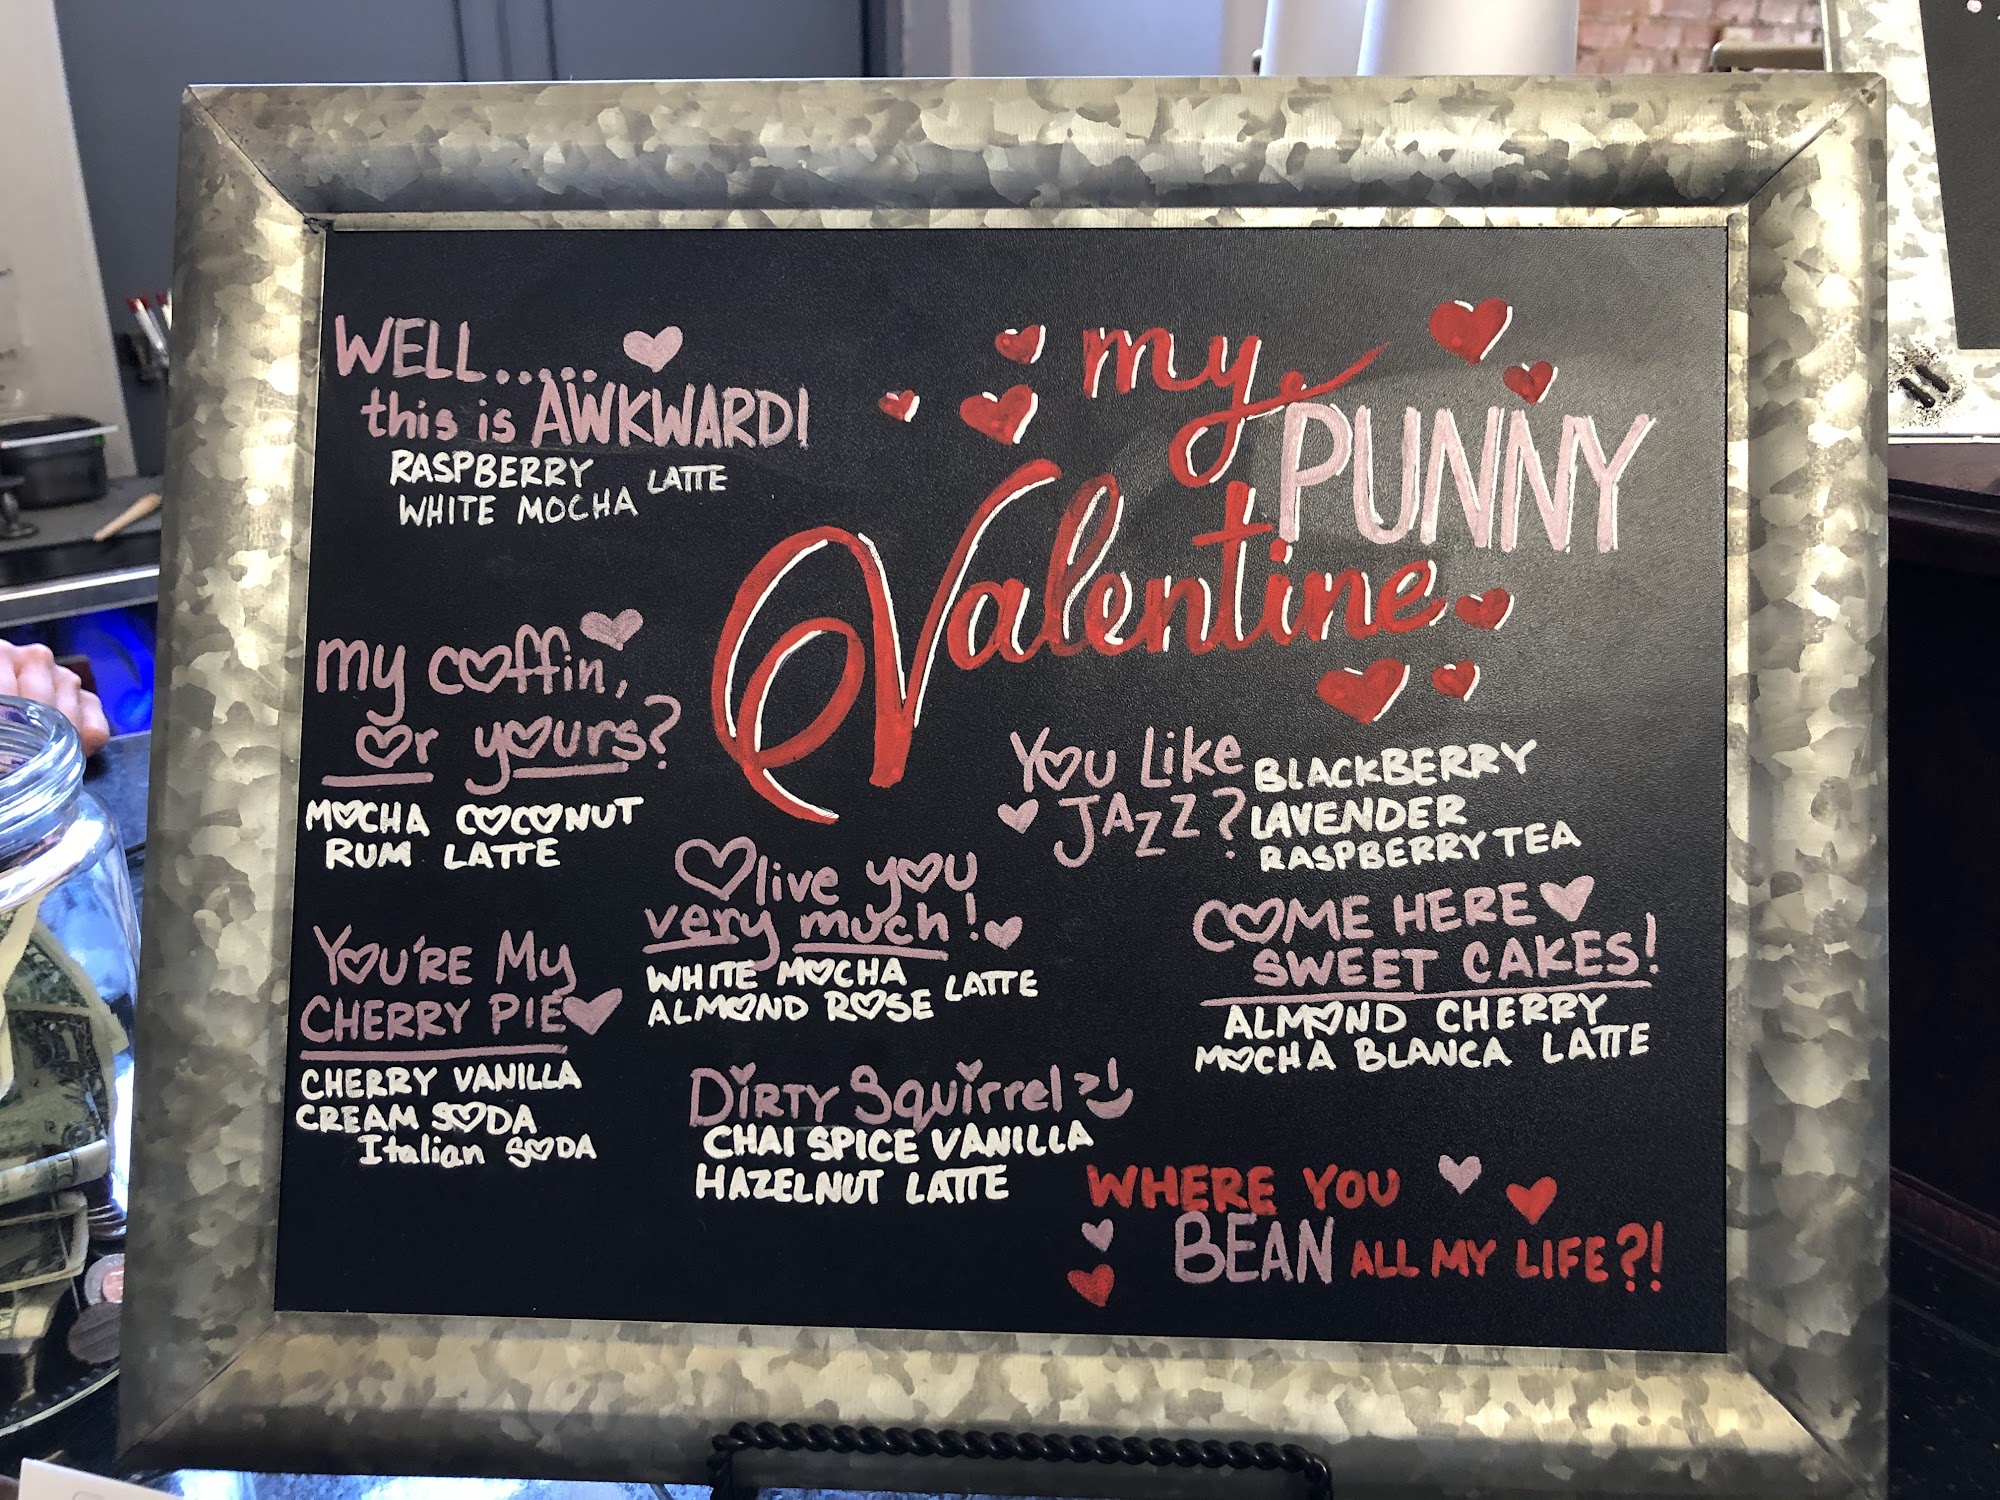 my
PUNNY
Valentine
WELL.....
this is AWKWARD!
RASPBERRY
WHITE MOCHA LATTE
my coffin,
or yours?
MOCHA COCONUT
RUM LATTE
YOU'RE MY
CHERRY PIE
CHERRY VANILLA
CREAM SODA
Italian SODA
live you
very much!
WHITE MOCHA
ALMOND ROSE LATTE
DIRTY Squirrel
CHAI SPICE VANILLA
HAZELNUT LATTE
YOU LIKE
JAZZ?
BLACKBERRY
LAVENDER
RASPBERRY TEA
COME HERE
SWEET CAKES!
ALMOND CHERRY
MOCHA BLANCA LATTE
WHERE YOU
BEAN ALL MY LIFE?!